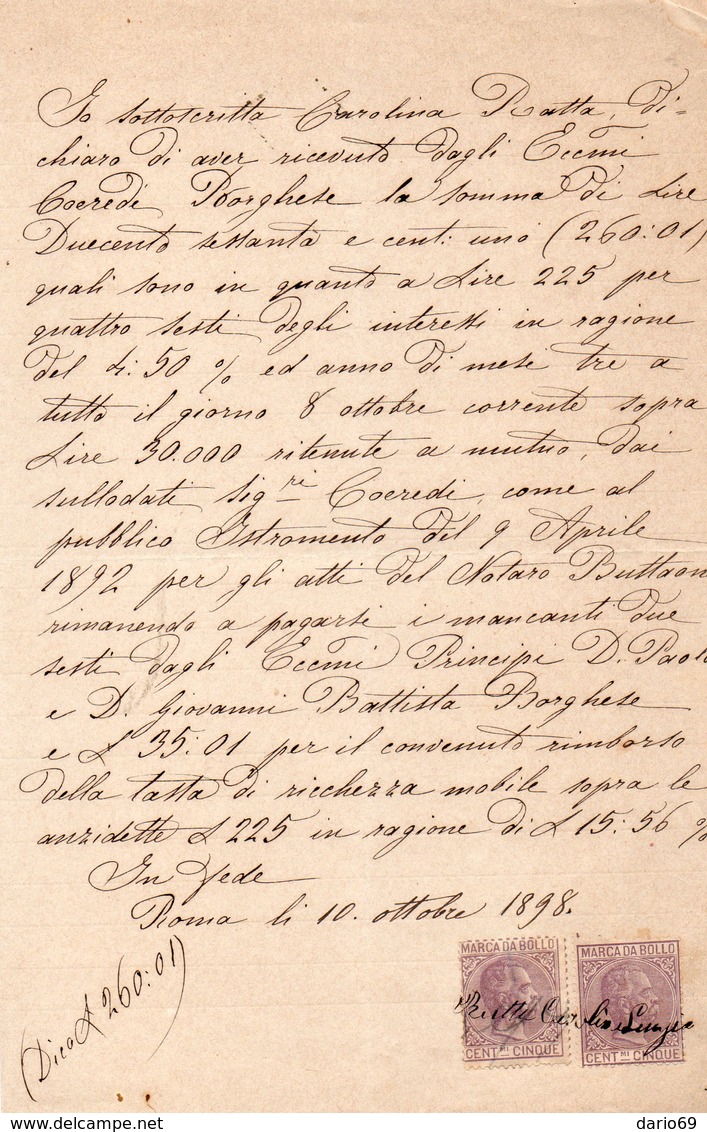 Io sottoscritta Carolina Ratta, di-
chiaro di aver ricevuto dagli Eccmi
Coeredi Borghese la somma di Lire
Duecento sessanta e cent: uno (260:01)
quali sono in quanto a Lire 225 per
quattro sesti degli interessi in ragione
del 4:50 % ed anno di mesi tre a
tutto il giorno 8 ottobre corrente sopra
Lire 30.000 ritenute a mutuo, dai
sullodati Sigri Coeredi, come al
pubblico Istromento del 9 Aprile
1892 per gli atti del Notaro Buttaon
rimanendo a pagarsi i mancanti due
sesti dagli Eccmi Principi D. Paolo
e D. Giovanni Battista Borghese
e £ 35:01 per il convenuto rimborso
della tassa di ricchezza mobile sopra le
anzidette £ 225 in ragione di £ 15:56 %
In fede
Roma li 10. ottobre 1898.
(Dico £ 260:01)
MARCA DA BOLLO MARCA DA BOLLO
CENT.MI CINQUE CENT.MI CINQUE
dario69